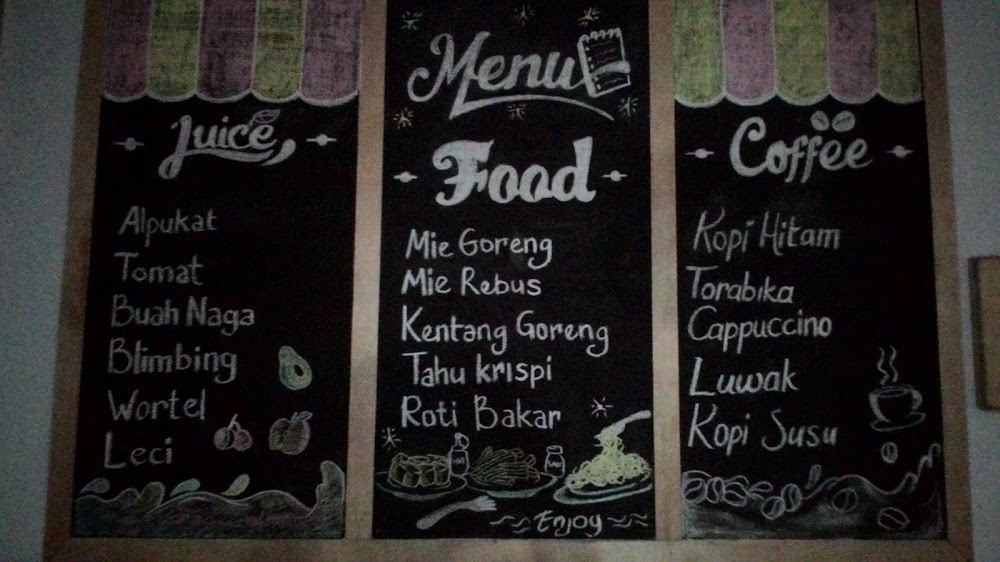 Juice
Alpukat
Tomat
Buah Naga
Blimbing
Wortel
Leci
Menu
Food
Mie Goreng
Mie Rebus
Kentang Goreng
Tahu krispi
Roti Bakar
Enjoy
Coffee
Kopi Hitam
Torabika
Cappuccino
Luwak
Kopi Susu